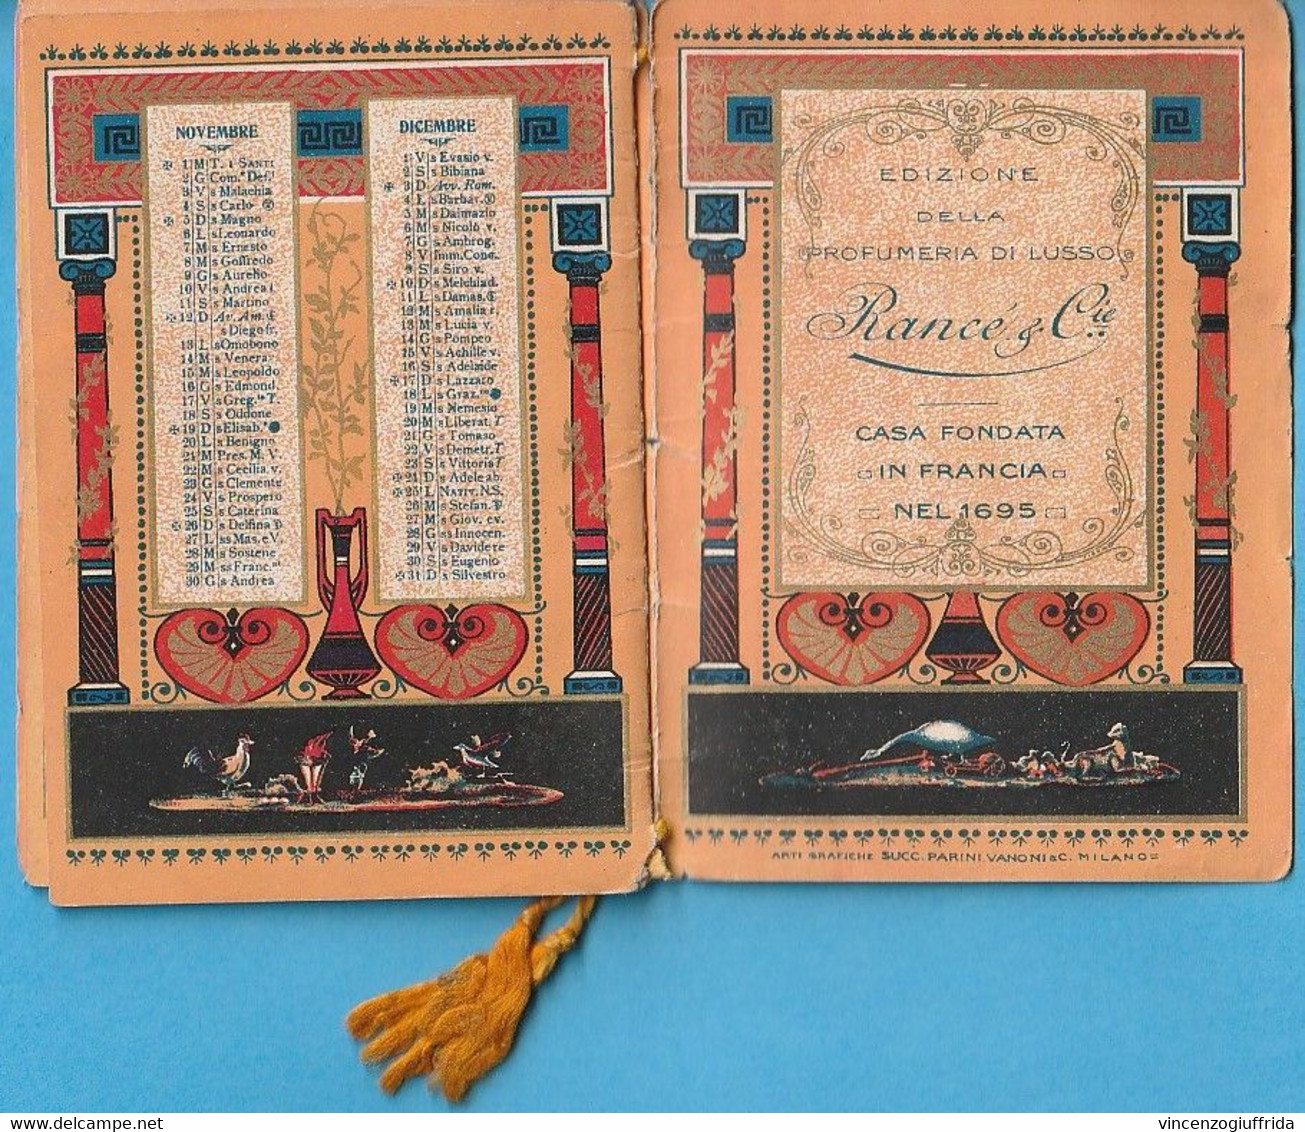 NOVEMBRE
✠ 1 M T. i SANTI
2 G Com.ⁿ Def.ⁱ
3 V s Malachia
4 S s Carlo
✠ 5 D s Magno
6 L s Leonardo
7 M s Ernesto
8 M s Goffredo
9 G s Aurelio
10 V s Andrea
11 S s Martino
✠ 12 D Av. Am.
s Diego fr.
13 L s Omobono
14 M s Venera
15 M s Leopoldo
16 G s Edmond.
17 V s Greg. T.
18 S s Oddone
✠ 19 D s Elisab.
20 L s Benigno
21 M Pres. M. V.
22 M s Cecilia v.
23 G s Clemente
24 V s Prospero
25 S s Caterina
✠ 26 D s Delfina
27 L ss Mas. e V.
28 M s Sostene
29 M ss Franc.
30 G s Andrea
DICEMBRE
1 V s Evasio v.
2 S s Bibiana
✠ 3 D Avv. Rom.
4 L s Barbar.
5 M s Dalmazio
6 M s Nicolò v.
7 G s Ambrog.
8 V Imm. Conc.
9 S s Siro v.
✠ 10 D s Melchiad.
11 L s Damas.
12 M s Amalia r.
13 M s Lucia v.
14 G s Pompeo
15 V s Achille v.
16 S s Adelaide
✠ 17 D s Lazzaro
18 L s Graz.
19 M s Nemesio
20 M s Liberat. T
21 G s Tomaso
22 V s Demetr. T
23 S s Vittoria T
✠ 24 D s Adele ab.
✠ 25 L NATIV. N.S.
26 M s Stefan.
27 M s Giov. ev.
28 G ss Innocen.
29 V s Davide re
30 S s Eugenio
✠ 31 D s Silvestro
EDIZIONE
DELLA
PROFUMERIA DI LUSSO
Rancé & Cie
CASA FONDATA
IN FRANCIA
NEL 1695
ARTI GRAFICHE SUCC. PARINI, VANONI & C. MILANO
vincenzogiuffrida